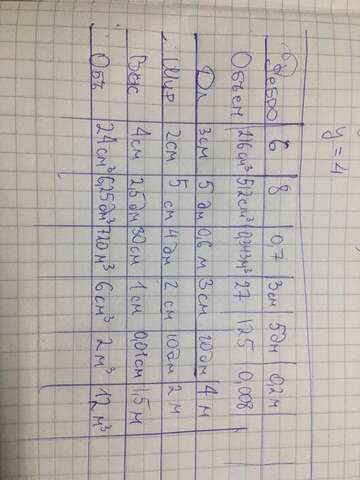 y = 4
Ребро 6 8 0,7 3см 5дм 0,2м
Объем 0,343м³ 27 125 0,008
Дл 3см 5 дм 0,6 м 3 см 20дм 4 м
Шир 2см 5 см 4дм 2 см 10дм 2 м
Выс 4см 25дм 30см 1 см 0,01см 1,5м
Объ 24см³ 6,25дм³ 720м³ 6см³ 2м³ 12м³